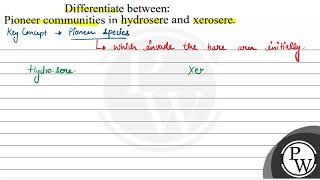 Differentiate between:
Pioneer communities in hydrosere and xerosere.
Key Concept → Pioneer species
↳ which invade the bare area initially.
Hydrosere Xer
PW